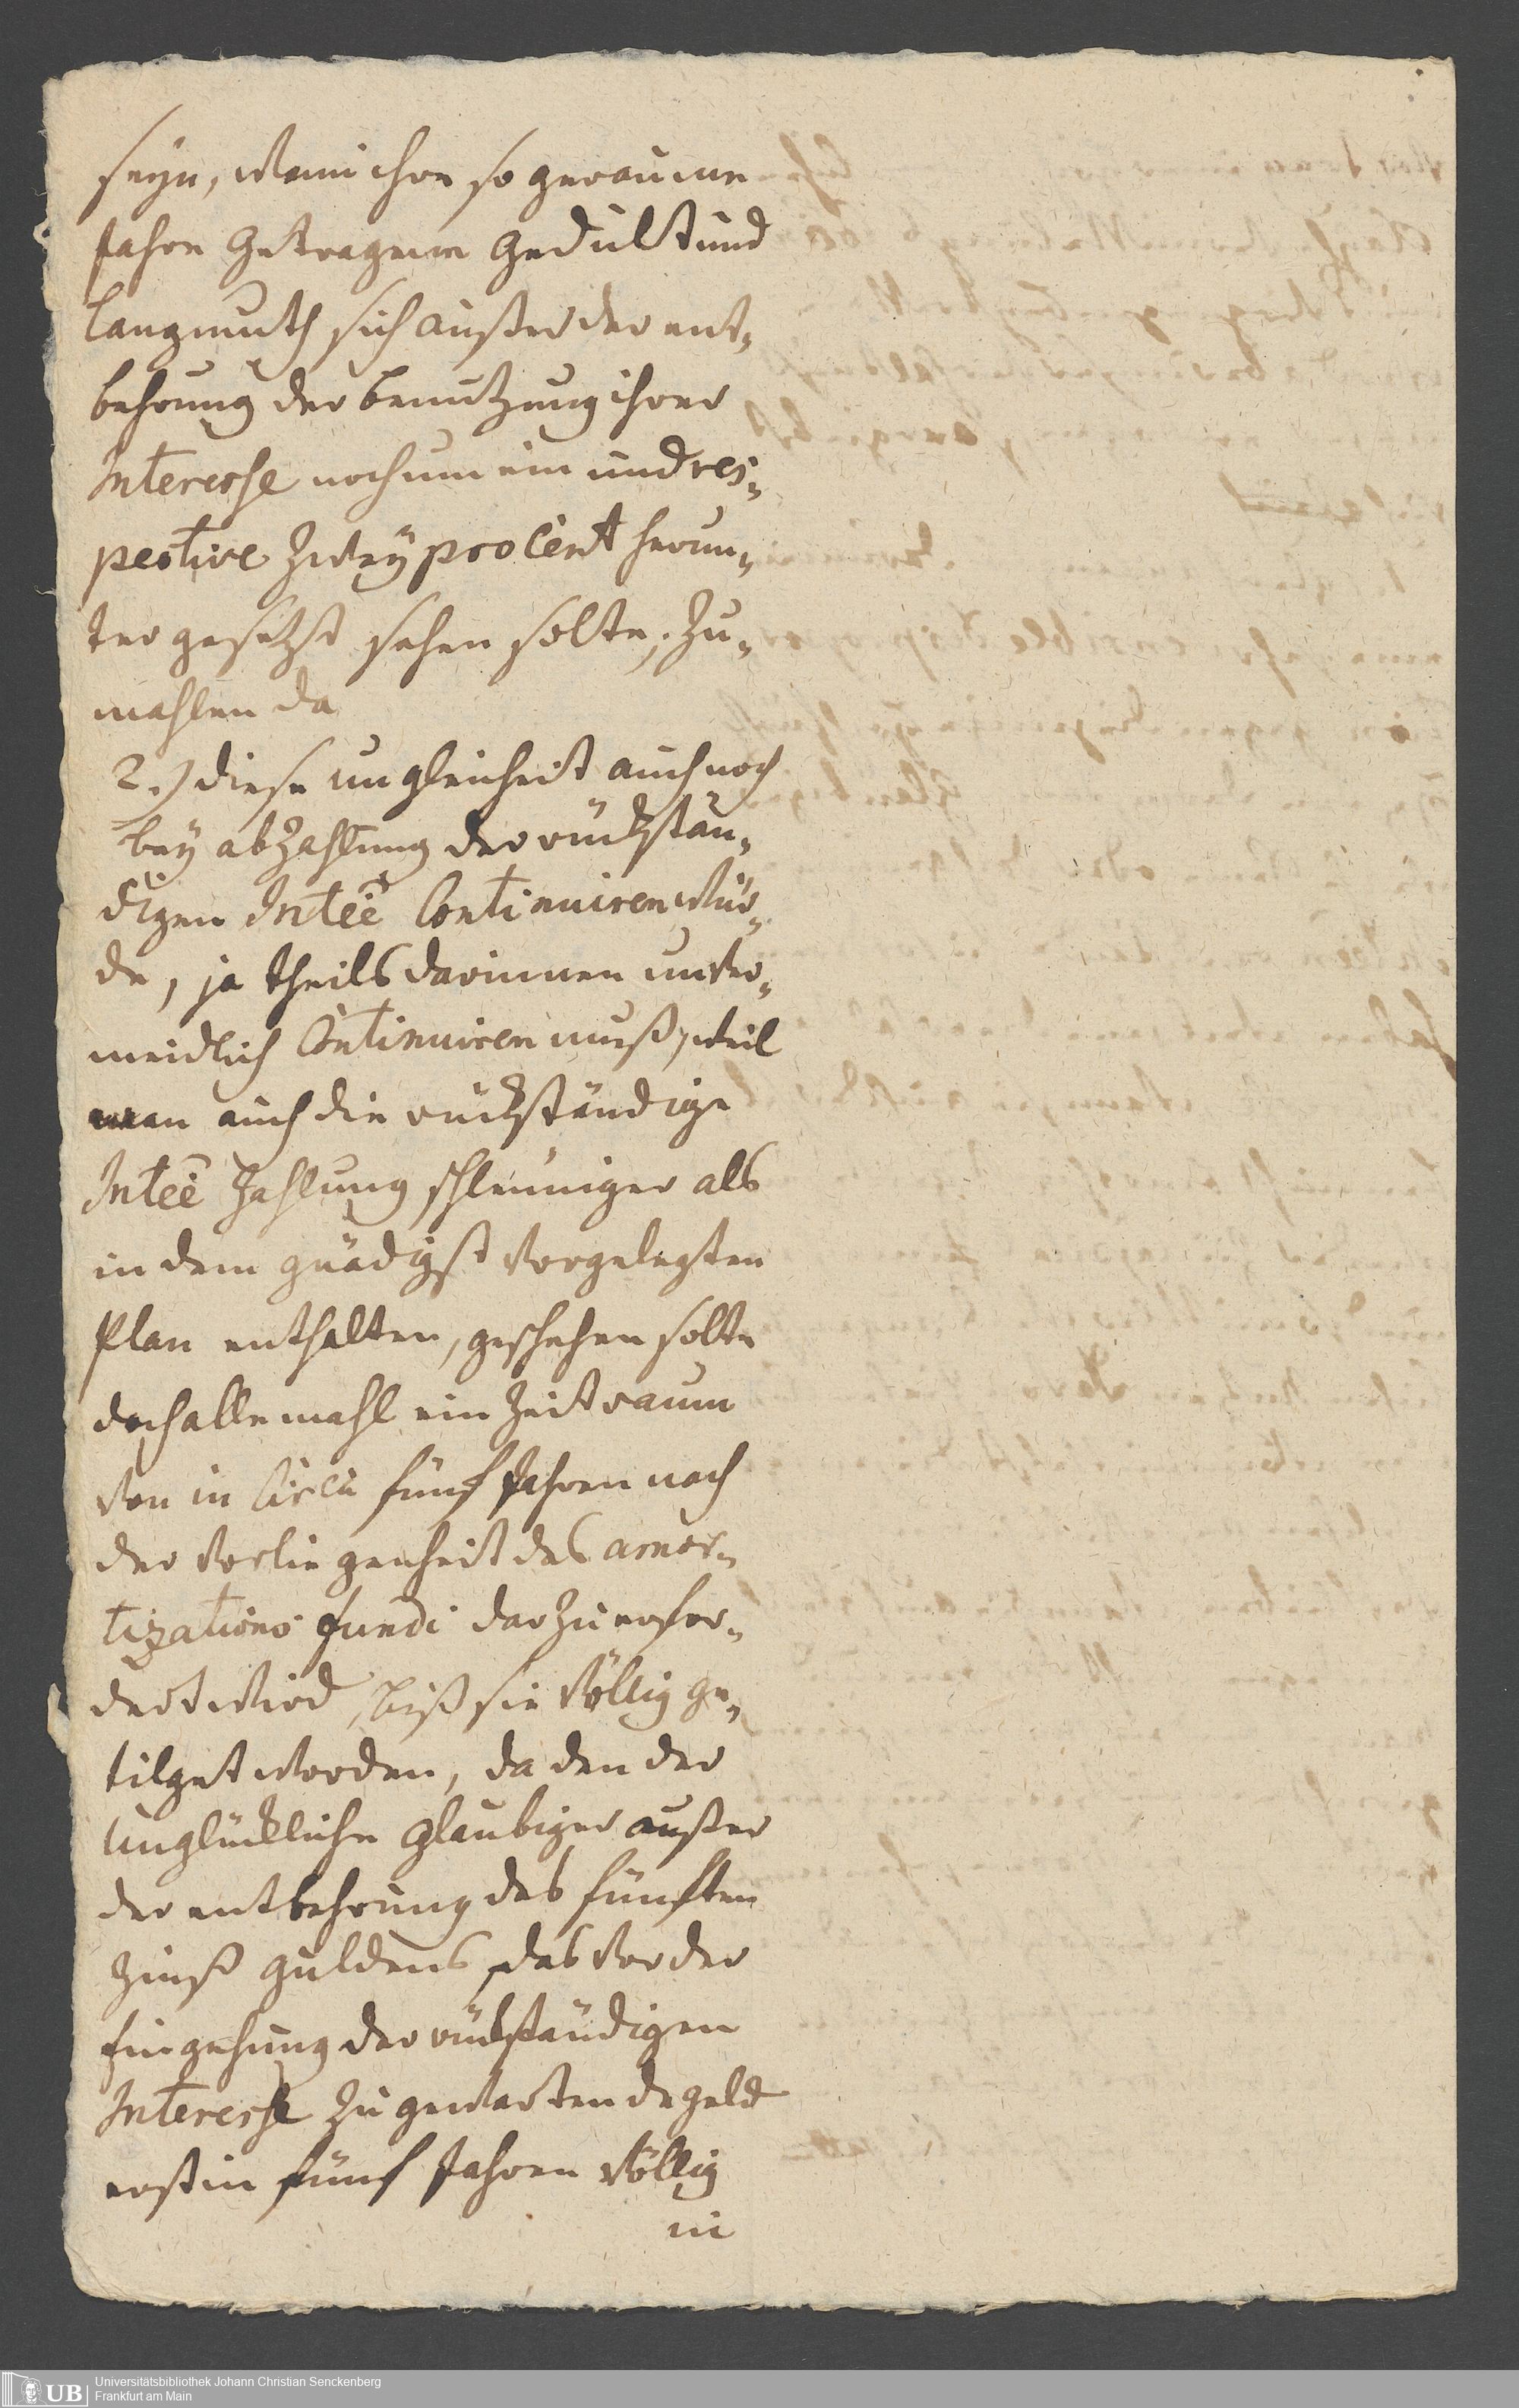 seyn, wenn ihre so geraume
Jahre getragene Gedult und
Langmuth sich außer der ent-
behrung der benutzung ihrer
Interesse noch um ein und res-
pective zwey procent herun-
ter gesetzt sehen solte; zu-
mahlen da
2.) diese ungleichheit auch noch
bey abzahlung der rückstän-
digen Intee Continuiren wür-
de, ja theils darinnen unver-
meidlich Continuiren muß, weil
wan auch die rückständige
Intee Zahlung schleuniger als
in dem gnädigst vorgelegten
Plan enthalten, geschehen solte
doch allemahl ein Zeitraum
von in circa fünf Jahren nach
der des amor-
tizations fundi darzu erfor-
dert wird, biß sie völlig ge-
tilget worden, da den der
Unglückliche Glaubiger außer
der entbehrung des fünften
Zinß guldens, das vor der
Eingehung der rückständigen
Interesse zu gewartende geld
erst in fünf Jahren völlig
in
Universitätsbibliothek Johann Christian Senckenberg
Frankfurt am Main
UB